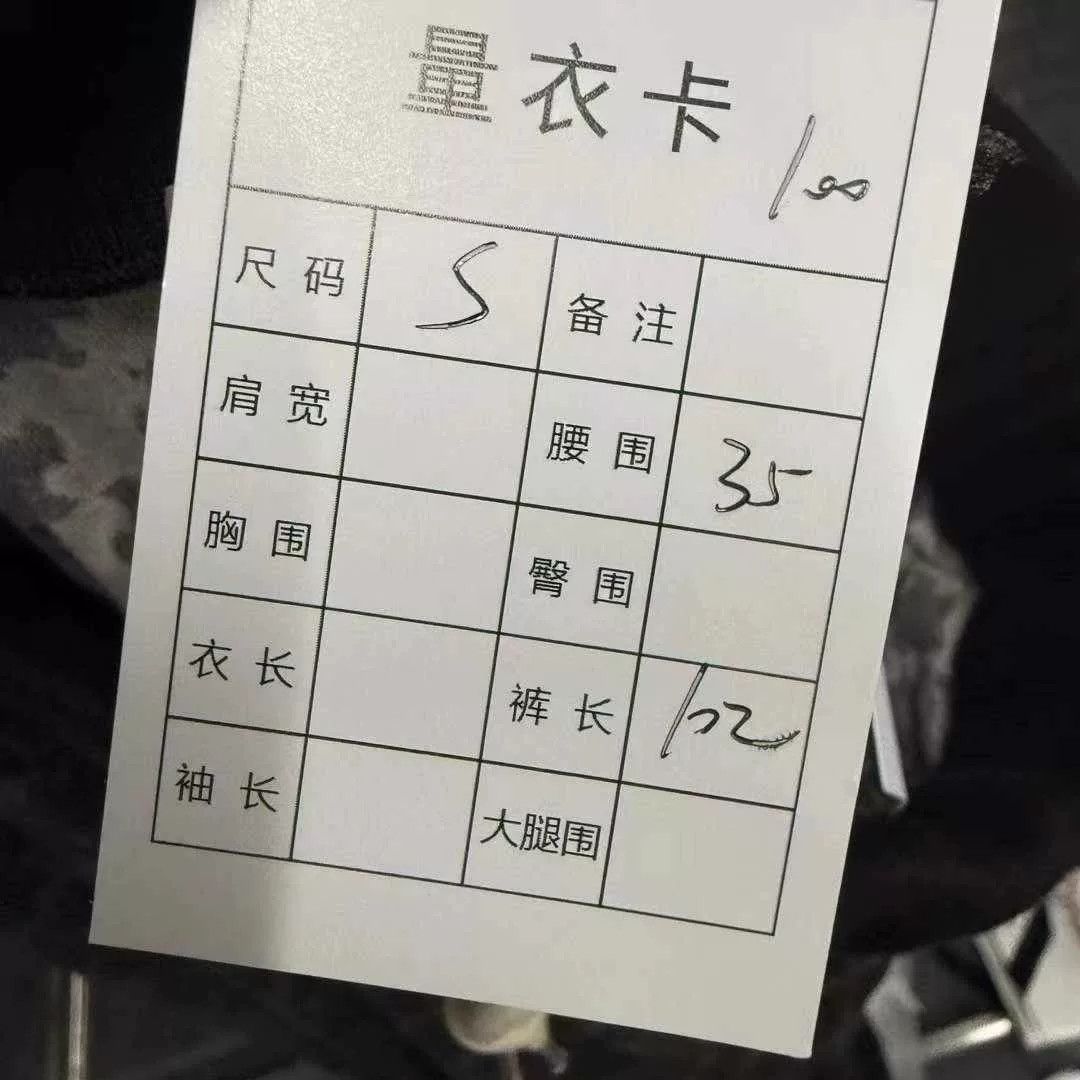 量衣卡
100
尺码 S 备注
肩宽 腰围 35
胸围 臀围
衣长 裤长 102
袖长 大腿围